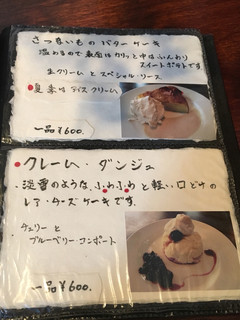 さつまいもの バターケーキ
温めるので 表面はカリッと中はふんわり
スイートポテトです
生クリームと スペシャル・ソース
アイスクリーム
一品￥600.
クレーム・ダンジュ
淡雪のような ふわふわと軽い口どけの
レア・チーズケーキです。
チェリーと
ブルーベリー・コンポート
一品￥600.